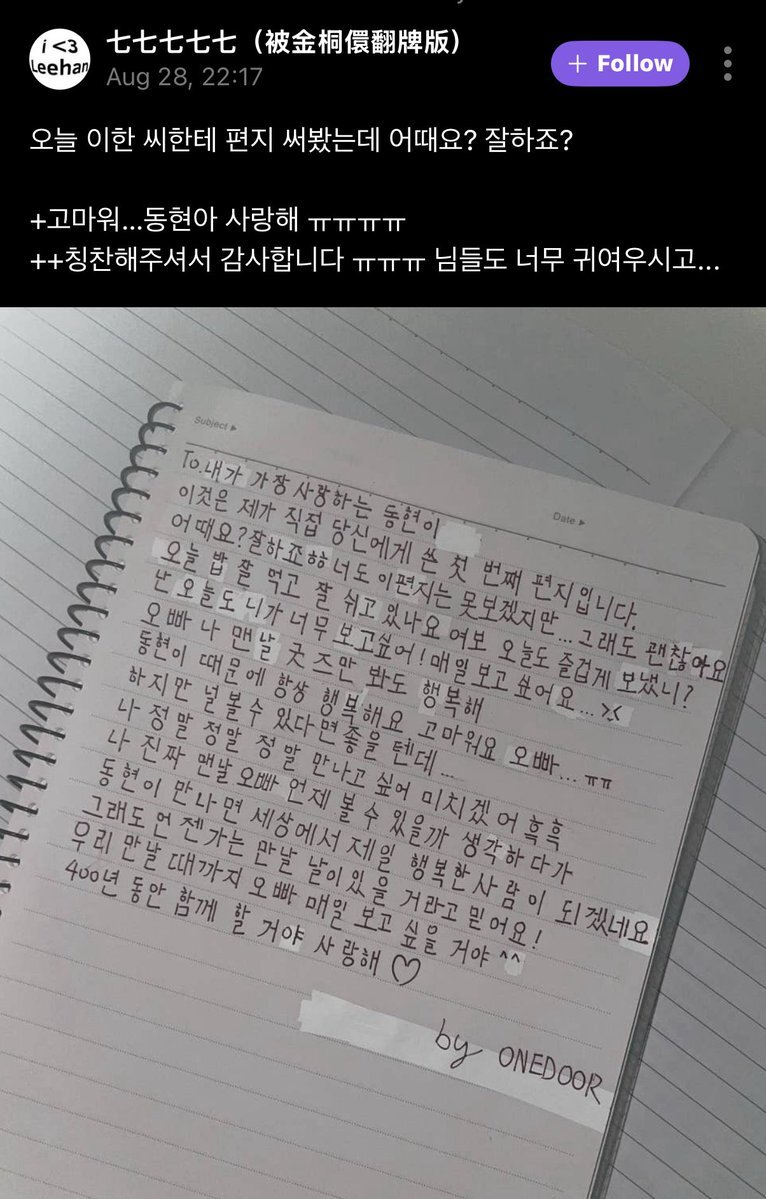 i <3
Leehan
七七七七七（被金桐儇翻牌版）
Aug 28, 22:17
+ Follow
오늘 이한 씨한테 편지 써봤는데 어때요? 잘하죠?
+고마워...동현아 사랑해 ㅠㅠㅠㅠ
++칭찬해주셔서 감사합니다 ㅠㅠㅠ 님들도 너무 귀여우시고...
Subject ▶
Date ▶
To.내가 가장 사랑하는 동현이
이것은 제가 직접 당신에게 쓴 첫 번째 편지입니다.
어때요?잘하죠ㅎㅎ너도 이편지는 못보겠지만...그래도 괜찮아요
오늘 밥 잘 먹고 잘 쉬고 있나요 여보 오늘도 즐겁게 보냈니?
난 오늘도 니가 너무 보고싶어!매일 보고 싶어요...><
오빠 나 맨날 굿즈만 봐도 행복해
동현이 때문에 항상 행복해요 고마워요 오빠...ㅠㅠ
하지만 널볼수 있다면좋을 텐데...
나 정말 정말 정말 만나고 싶어 미치겠어흑흑
나 진짜 맨날오빠 언제 볼 수 있을까 생각하다가
동현이 만나면 세상에서 제일 행복한사람이 되겠네요
그래도언젠가는 만날 날이있을 거라고 믿어요!
우리 만날 때까지 오빠 매일 보고 싶을 거야^^
400년 동안 함께 할 거야 사랑해♡
by ONEDOOR